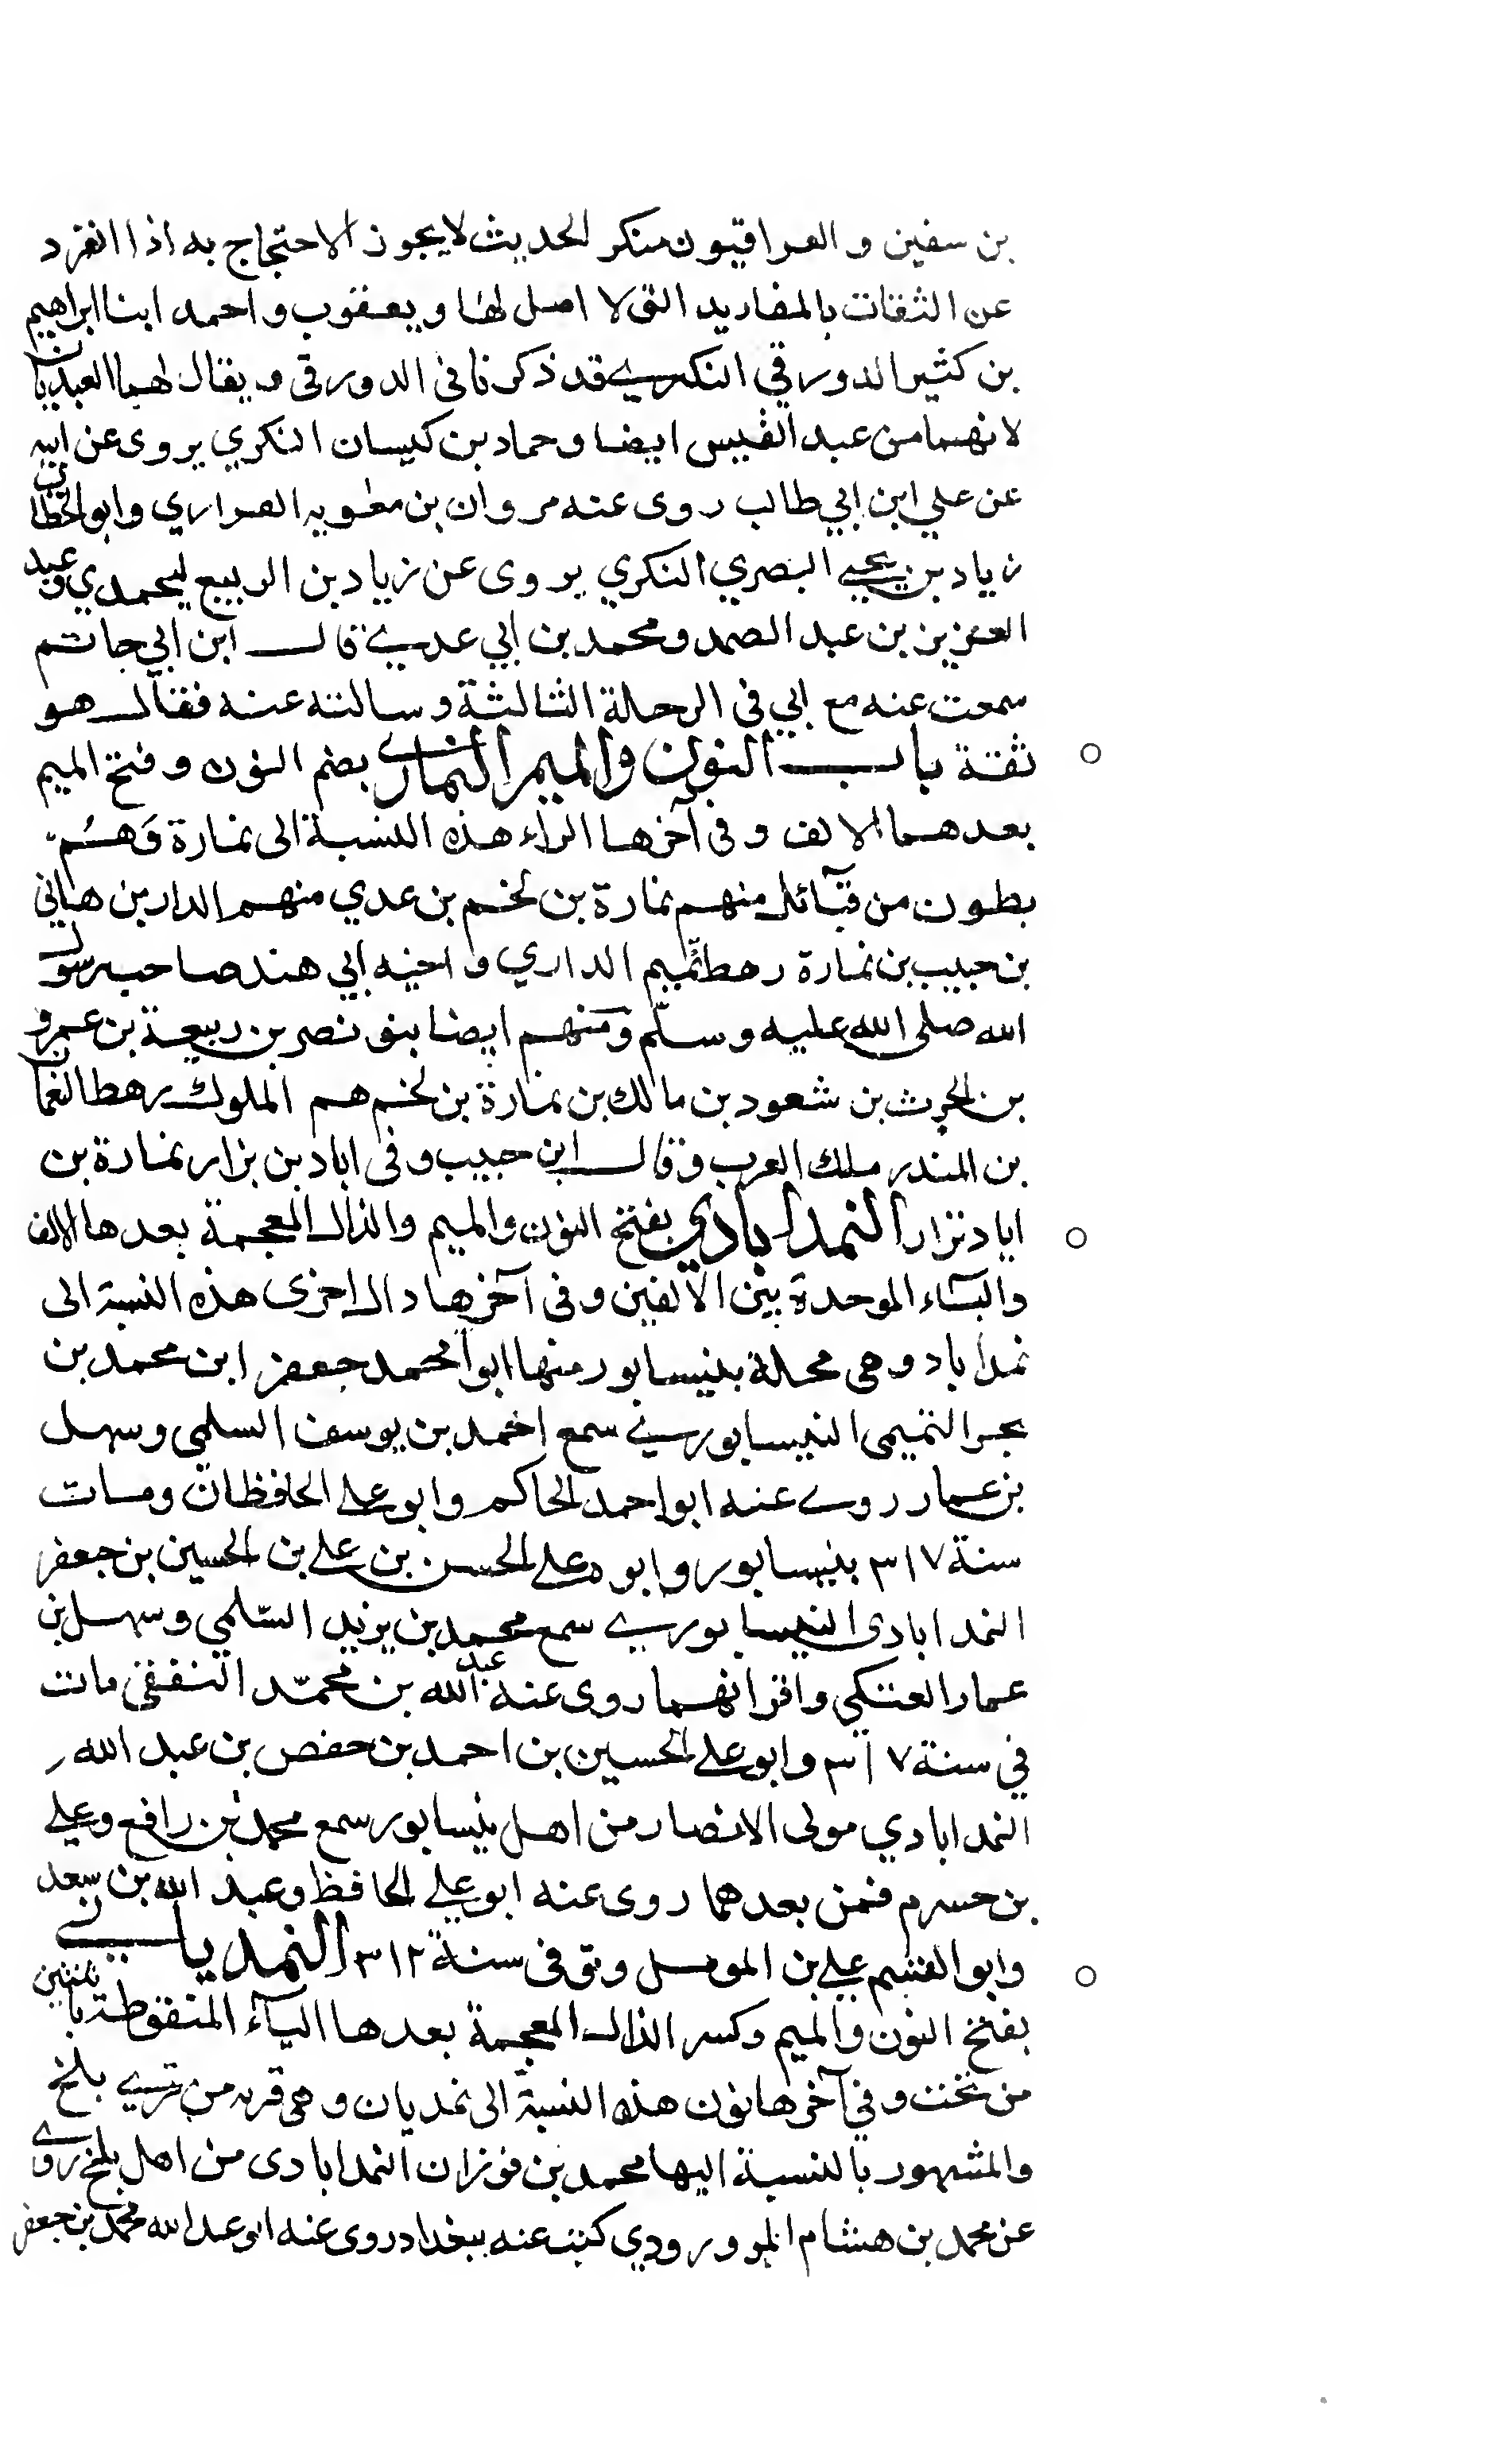 بن سفين و العراقيون منكر الحديث لا يجوز الاحتجاج به اذا انفرد
عن الثقات بالمفاريد التى لا اصل لها و يعقوب و احمد ابنا ابراهيم
بن كثير الدورقي النكري قد ذكرنا فى الدورقى و يقال لهما العبديان
لانهما من عبد القيس ايضا و حماد بن كيسان النكري يروى عن ابيه
عن علي ابن ابي طالب روى عنه مروان بن معوية الفزاري وابو الخطاب
زياد بن يحيى البصري النكري يروى عن زياد بن الربيع ليحمدي وعبد
العزيز بن عبد الصمد و محمد بن ابي عدي قال ابن ابي حاتم
سمعت عنه مع ابي فى الرحلة الثالثة و سالته عنه فقال هو
ثقة باب النون والميم النمارى بضم النون و فتح الميم
بعدهما الالف و فى آخرها الراء هذه النسبة الى نمارة وهم
بطون من قبآئل منهم نمارة بن لخم بن عدي منهم الدار بن هانى
بن حبيب بن نمارة رهط تميم الداري و اخيه ابي هند صاحب رسول
الله صلى الله عليه وسلم ومنهم ايضا بنو نصر بن ربيعة بن عمرو
بن الحرث بن شعود بن مالك بن نمارة بن لخم هم الملوك رهط النعمان
بن المندر ملك العرب وقال ابن حبيب و فى اياد بن نزار نمارة بن
اياد نزار النمدابادي بفتح النون والميم والذال المعجمة بعدها الالف
والبآء الموحدة بين الالفين و فى آخرها دال اخرى هذه النسبة الى
نمداباد و هى محلة بنيسابور منها ابو محمد جعفر ابن محمد بن
بحر التميمى النيسابوري سمع احمد بن يوسف السلمي و سهل
بن عمار روى عنه ابو احمد الحاكم و ابو على الحافظان ومات
سنة ٣١٧ بنيسابور و ابو على الحسن بن على بن الحسين بن جعفر
النمدابادى النيسابوري سمع محمد بن يزيد السلمي وسهل بن
عمار العتكي واقرانهما روى عنه عبد الله بن محمد الثقفى مات
في سنة ٣١٧ و ابو على الحسين بن احمد بن حفص بن عبد الله
النمدابادي مولى الانصار من اهل نيسابور سمع محمد بن رافع وعلي
بن حسرم فمن بعدهما روى عنه ابو علي الحافظ وعبد الله بن سعد
وابو القسم علي بن المومل و توفى سنة ٣١٢ النمديانى
بفتح النون والميم وكسر الذال المعجمة بعدها اليآء المنقوطة باثنتين
من تحت و في آخرها نون هذه النسبة الى نمديان و هى قرية من قرى بلخ
والمشهور بالنسبة اليها محمد بن فوزان النمدابادى من اهل بلخ روى
عن محمد بن هشام المرورودي كتب عنه ببغداد روى عنه ابو عبد الله محمد بن جعفر